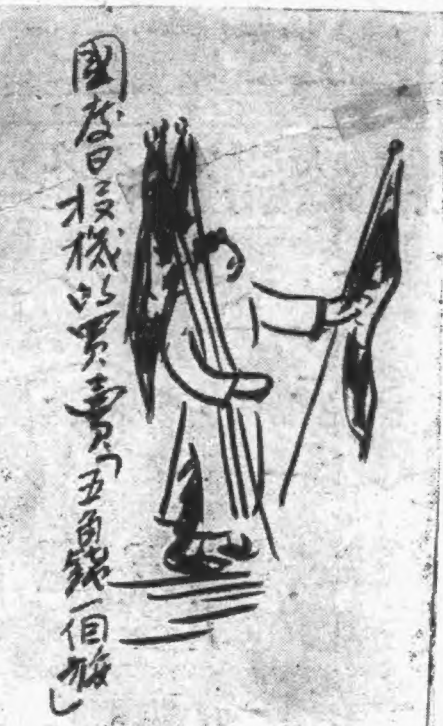 國慶日投機的買賣「五角錢一個旗」